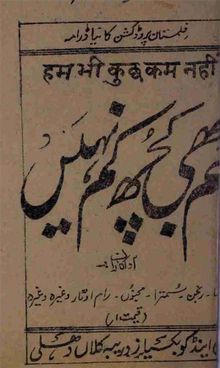 فلمستان پروڈکشن کا نیا ڈرامہ
हम भी कुछ कम नहीं
بھی کچھ کم نہیں
اداکار
رنجن۔ سمترا۔ مجنوں۔ رام اوتار وغیرہ وغیرہ
(قیمت ۱ر)
اینڈ کو بکسیلرز دریبہ کلاں دھلی